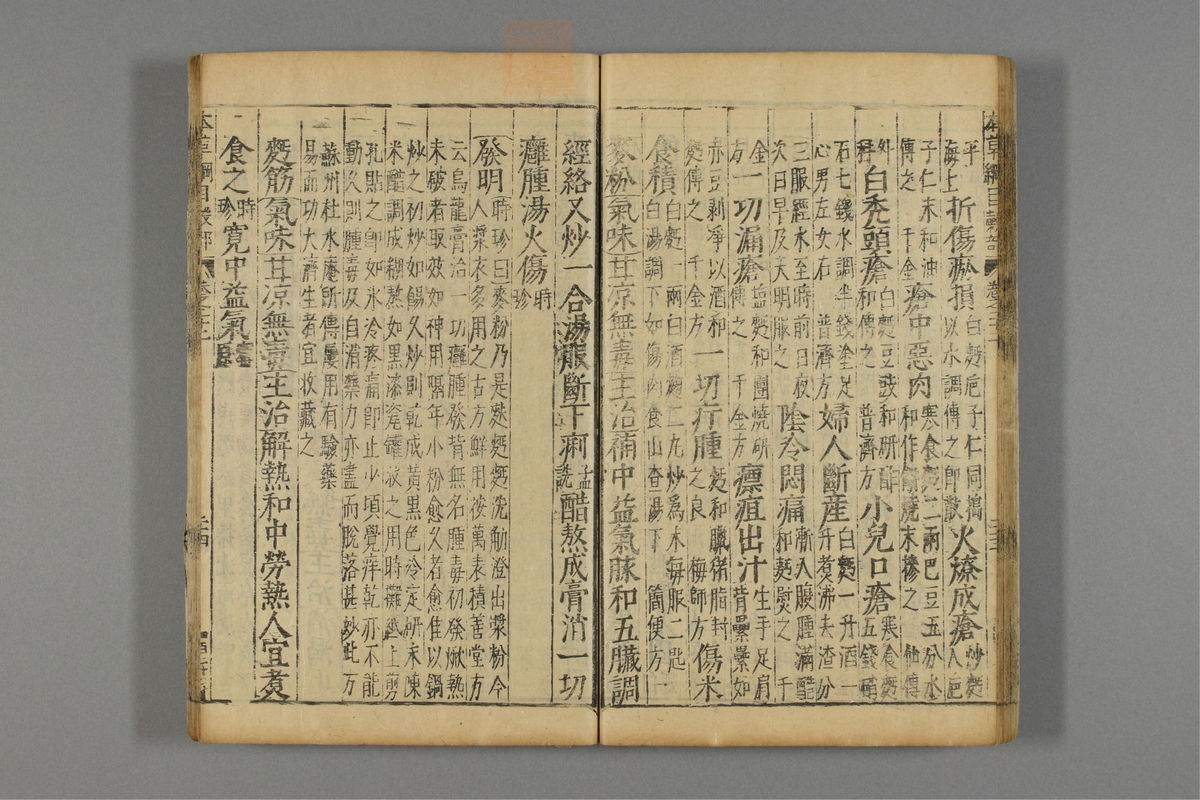 平
海上折傷瘀損白麪梔子仁同搗
以水調傅之即散
火燎成瘡炒麪
入梔
子仁末和油
傅之 千金瘡中惡肉寒食麪二兩巴豆五分水
和作餅燒末摻之 仙傳
外白禿頭瘡白麪豆豉和研酢
和傅之 普濟方小兒口瘡寒食麪
五錢硝
石七錢水調半錢塗足
心男左女右 普濟方婦人斷産白麪一升酒一
升煮沸去渣分
三服經水至時前日夜
次日早及天明服之陰冷悶痛漸入腹腫滿醋
和麪熨之 千
金
方一切漏瘡鹽麪和團燒研
傅之 千金方瘭疽出汁生手足肩
背纍纍如
赤豆剥淨以酒和
麪傅之 千金方一切疔腫麪和臘猪脂封
之良 梅師方傷米
食積白麪一兩白酒麴二丸炒爲末每服二匙
白湯調下如傷肉食山查湯下 簡便方
麥粉氣味甘凉無毒主治補中益氣脉和五臟調
經絡又炒一合湯服斷下痢孟
詵醋熬成膏消一切
癰腫湯火傷時
珍
發明時珍曰麥粉乃是麩麪麪洗觔澄出漿粉今
人漿衣多用之古方鮮用按萬表積善堂方
云烏龍膏治一切癰腫發背無名腫毒初發焮熱
未破者取效如神用隔年小粉愈久者愈佳以鍋
炒之初炒如餳久炒則乾成黃黑色冷定研末陳
米醋調成糊熬如黑漆瓷罐收之用時攤紙上剪
孔貼之即如氷冷疼痛即止少頃覺痒乾亦不能
動久則腫毒及自消藥力亦盡而脫落甚妙此方
蘇州杜水庵所傳屢用有驗藥
易而功大濟生者宜收藏之
麪筋氣味甘凉無毒主治解熱和中勞熱人宜煮
食之時
珍寬中益氣
本草綱目穀部